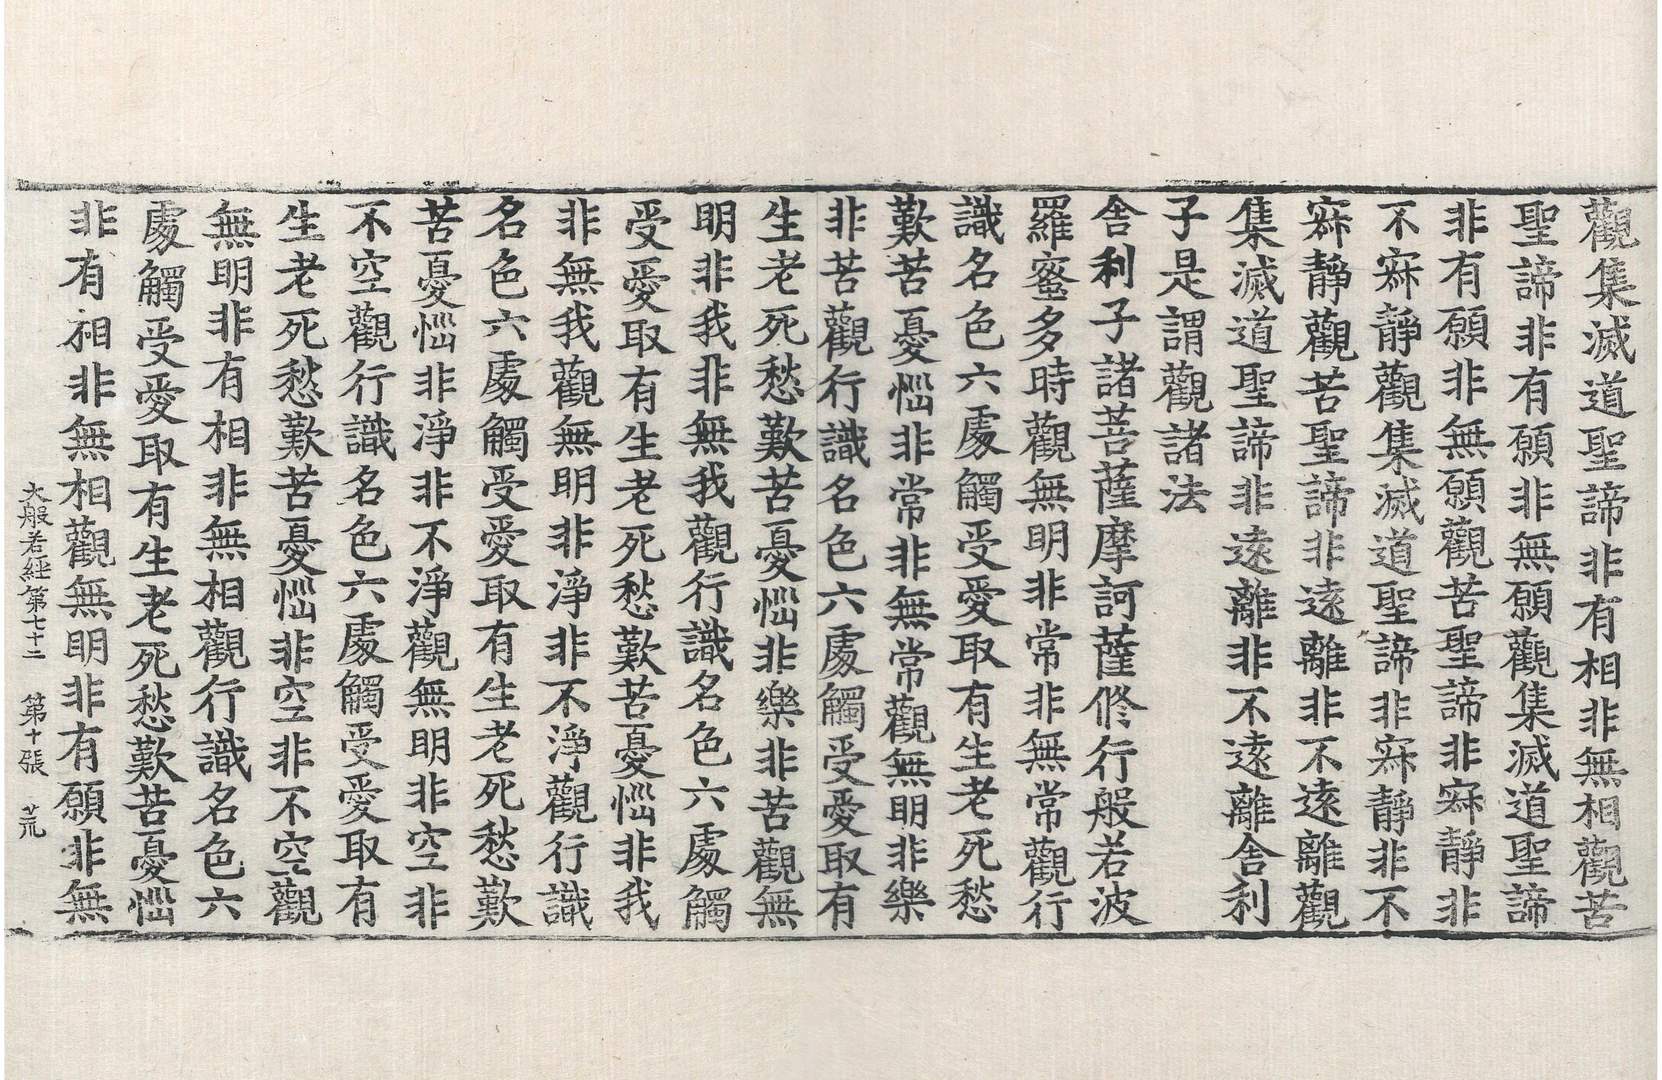 觀集滅道聖諦非有相非無相觀苦
聖諦非有願非無願觀集滅道聖諦
非有願非無願觀苦聖諦非寂靜非
不寂靜觀集滅道聖諦非寂靜非不
寂靜觀苦聖諦非遠離非不遠離觀
集滅道聖諦非遠離非不遠離舍利
子是謂觀諸法
舍利子諸菩薩摩訶薩修行般若波
羅蜜多時觀無明非常非無常觀行
識名色六處觸受愛取有生老死愁
歎苦憂惱非常非無常觀無明非樂
非苦觀行識名色六處觸受愛取有
生老死愁歎苦憂惱非樂非苦觀無
明非我非無我觀行識名色六處觸
受愛取有生老死愁歎苦憂惱非我
非無我觀無明非淨非不淨觀行識
名色六處觸受愛取有生老死愁歎
苦憂惱非淨非不淨觀無明非空非
不空觀行識名色六處觸受愛取有
生老死愁歎苦憂惱非空非不空觀
無明非有相非無相觀行識名色六
處觸受愛取有生老死愁歎苦憂惱
非有相非無相觀無明非有願非無
大般若經第七十二 第十張 荒